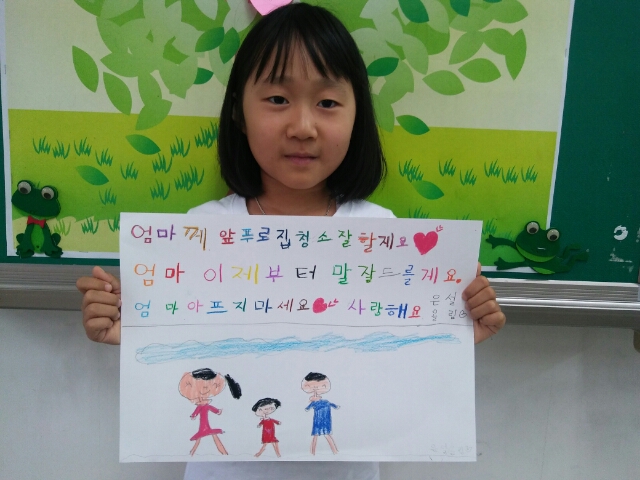 엄마께 앞푸로집청소잘할게요
엄마 이제부터 말잘드를게요.
엄마아프지마세요 사랑해요
은설
올림